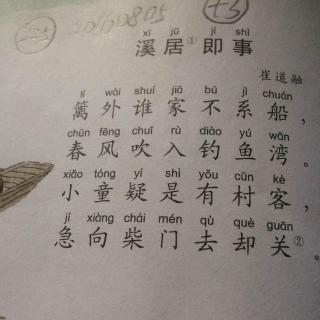 20160805
十3
xī jū jí shì
溪居①即事
崔道融
lí wài shuí jiā bú jì chuán
篱外谁家不系船，
chūn fēng chuī rù diào yú wān
春风吹入钓鱼湾。
xiǎo tóng yí shì yǒu cūn kè
小童疑是有村客，
jí xiàng chái mén qù què guān
急向柴门去却关②。